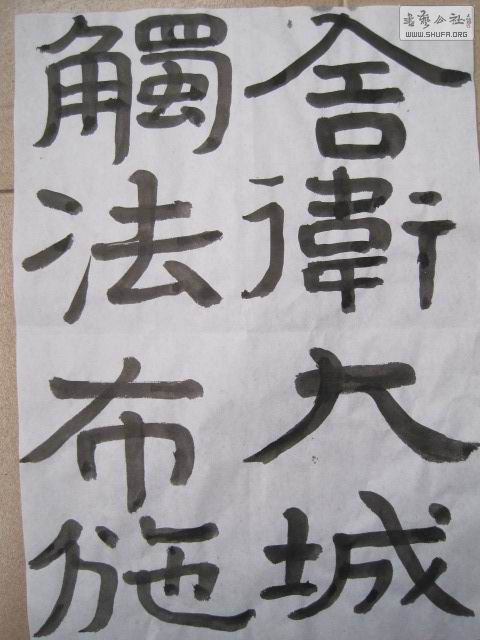 舍衛大城
觸法布施
書藝公社
WWW.SHUFA.ORG